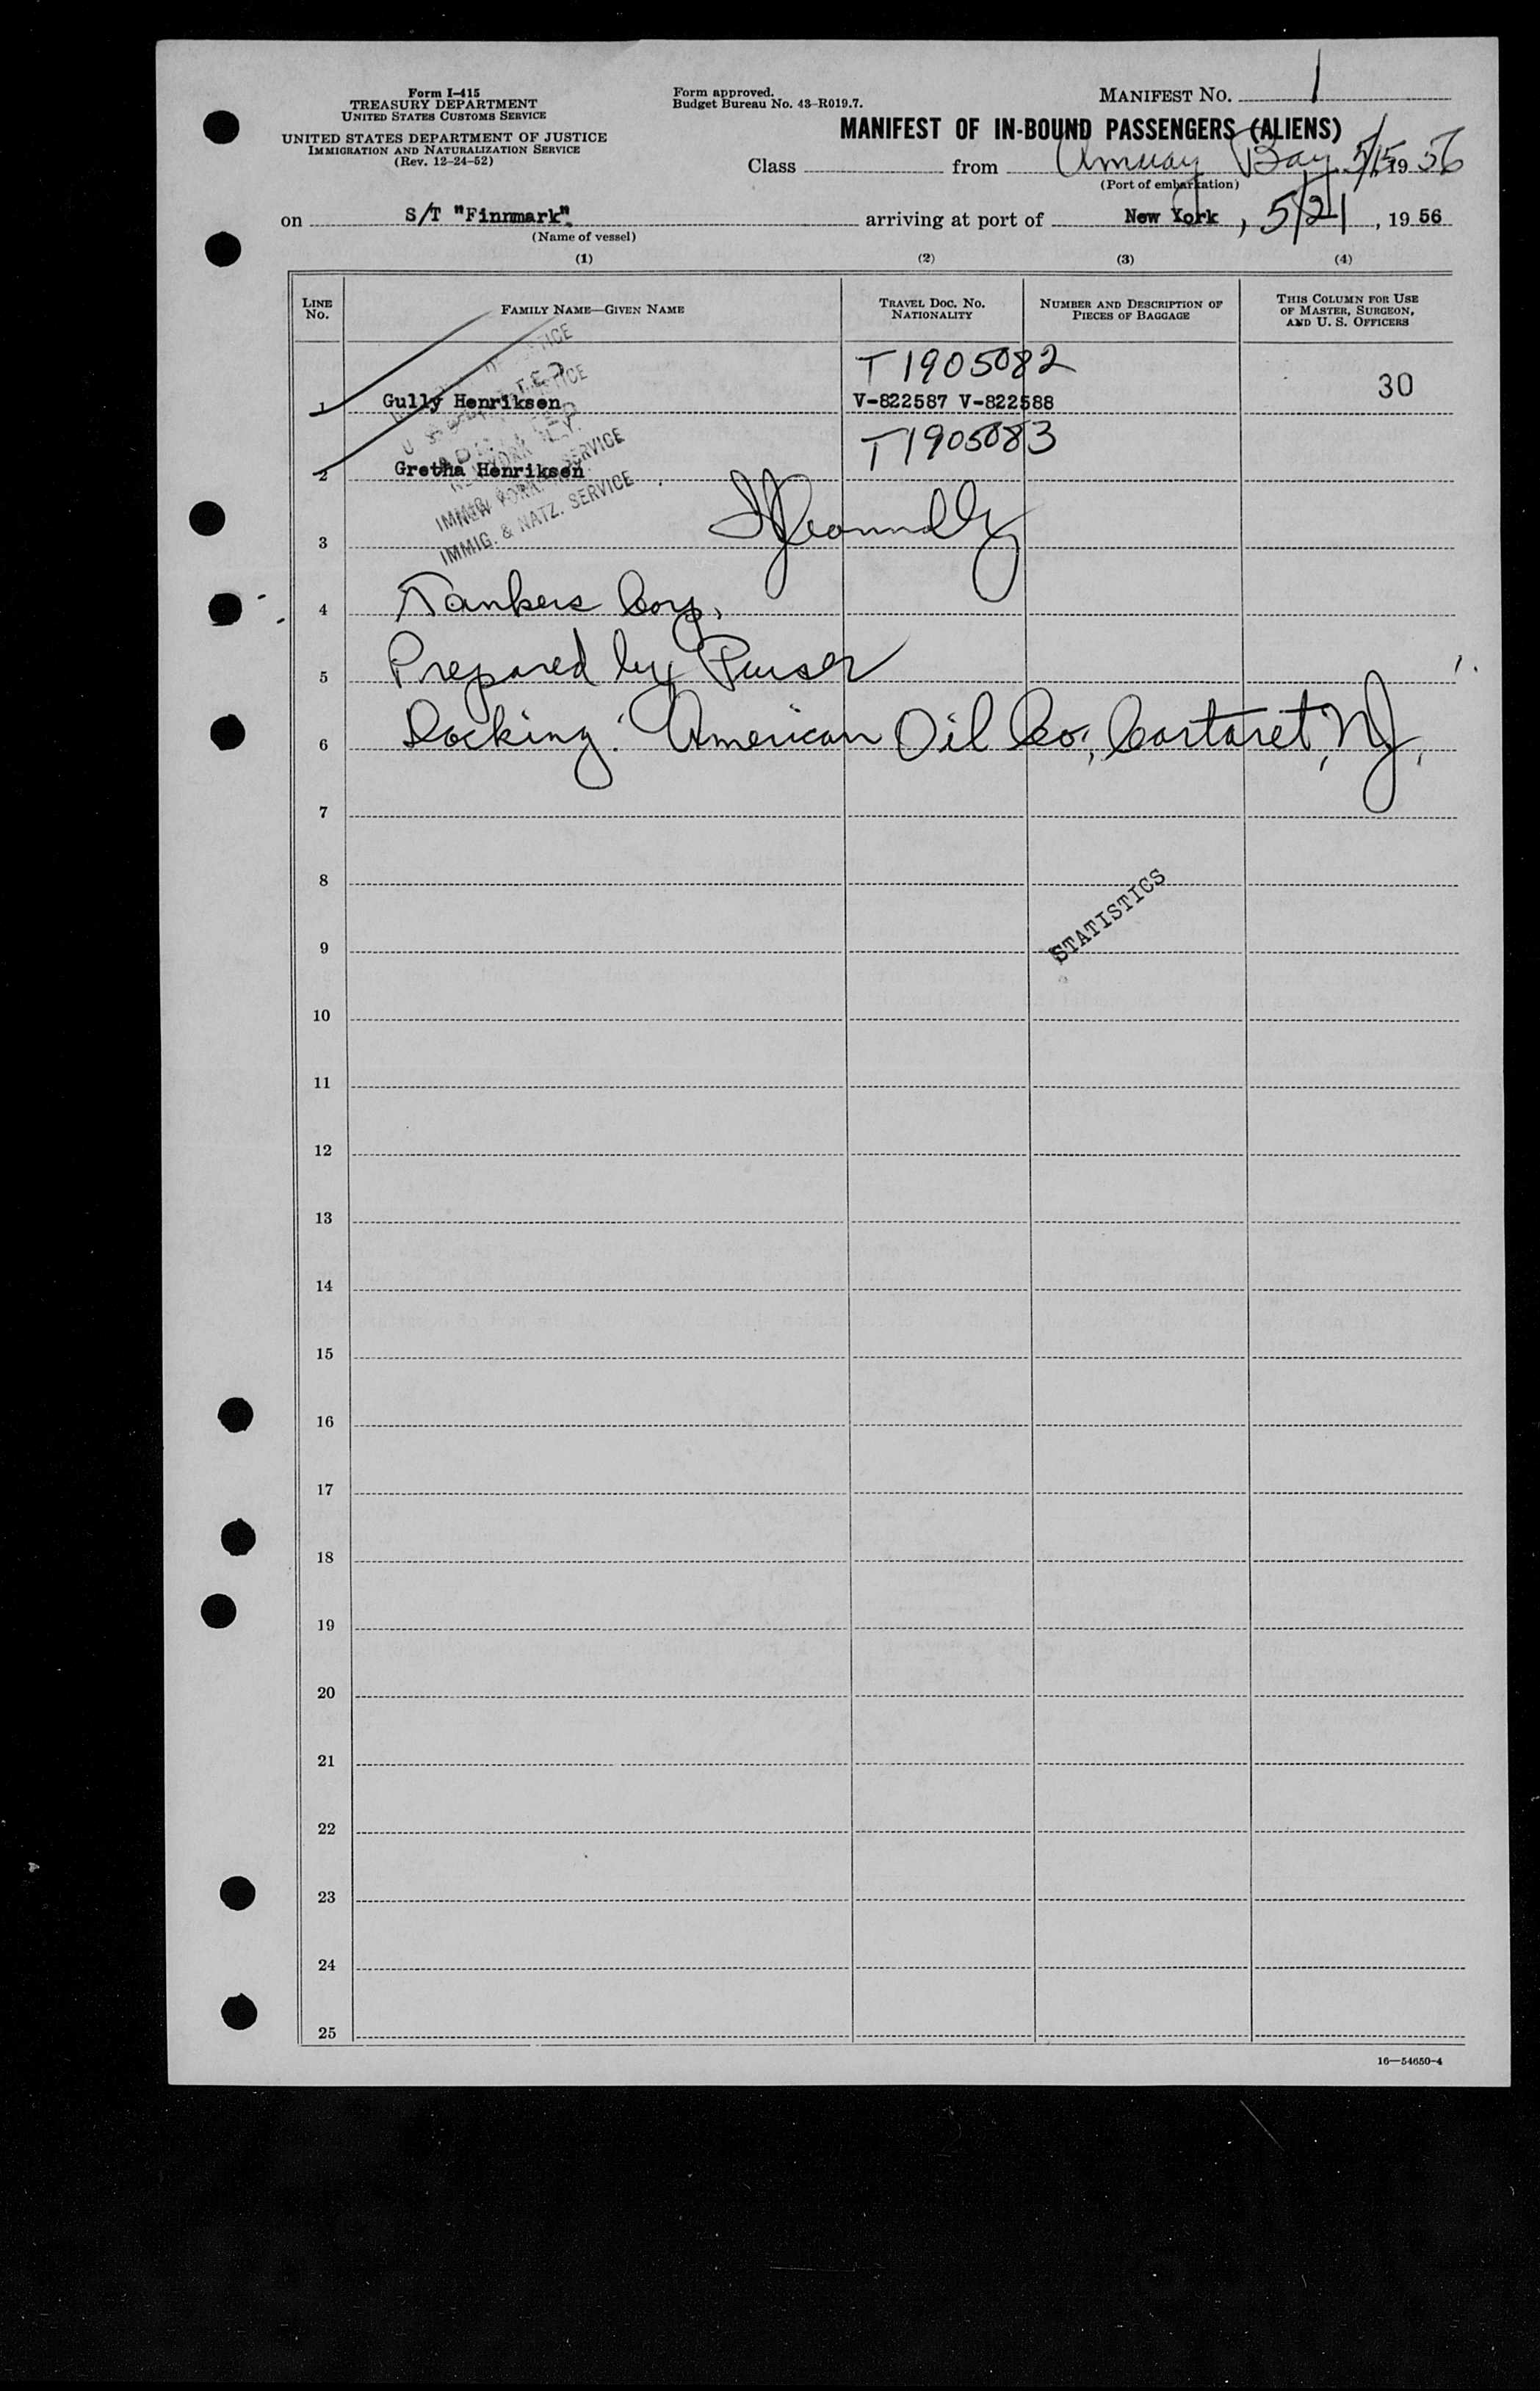 Form I-415
TREASURY DEPARTMENT
UNITED STATES CUSTOMS SERVICE
UNITED STATES DEPARTMENT OF JUSTICE
IMMIGRATION AND NATURALIZATION SERVICE
(Rev. 12-24-52)
Form approved.
Budget Bureau No. 43-R019.7.
MANIFEST NO. 1
MANIFEST OF IN-BOUND PASSENGERS (ALIENS)
Class from Amuay Bay 5/15 19 56
(Port of embarkation)
on S/T "Finnmark". arriving at port of New York, 5/21, 19 56
(Name of vessel)
(1) (2) (3) (4)
LINE NO.
FAMILY NAME—GIVEN NAME
TRAVEL DOC. NO.
NATIONALITY
NUMBER AND DESCRIPTION OF
PIECES OF BAGGAGE
THIS COLUMN FOR USE
OF MASTER, SURGEON,
AND U. S. OFFICERS
T1905082
1 Gully Henriksen V-822587 V-822588 30
T1905083
2 Gretha Henriksen
IMMIG. & NATZ. SERVICE
3
4 Tankers Corp.
5 Prepared by Purser
6 Docking: American Oil Co., Cartaret, NJ.
7
8
STATISTICS
9
10
11
12
13
14
15
16
17
18
19
20
21
22
23
24
25
16—54650-4